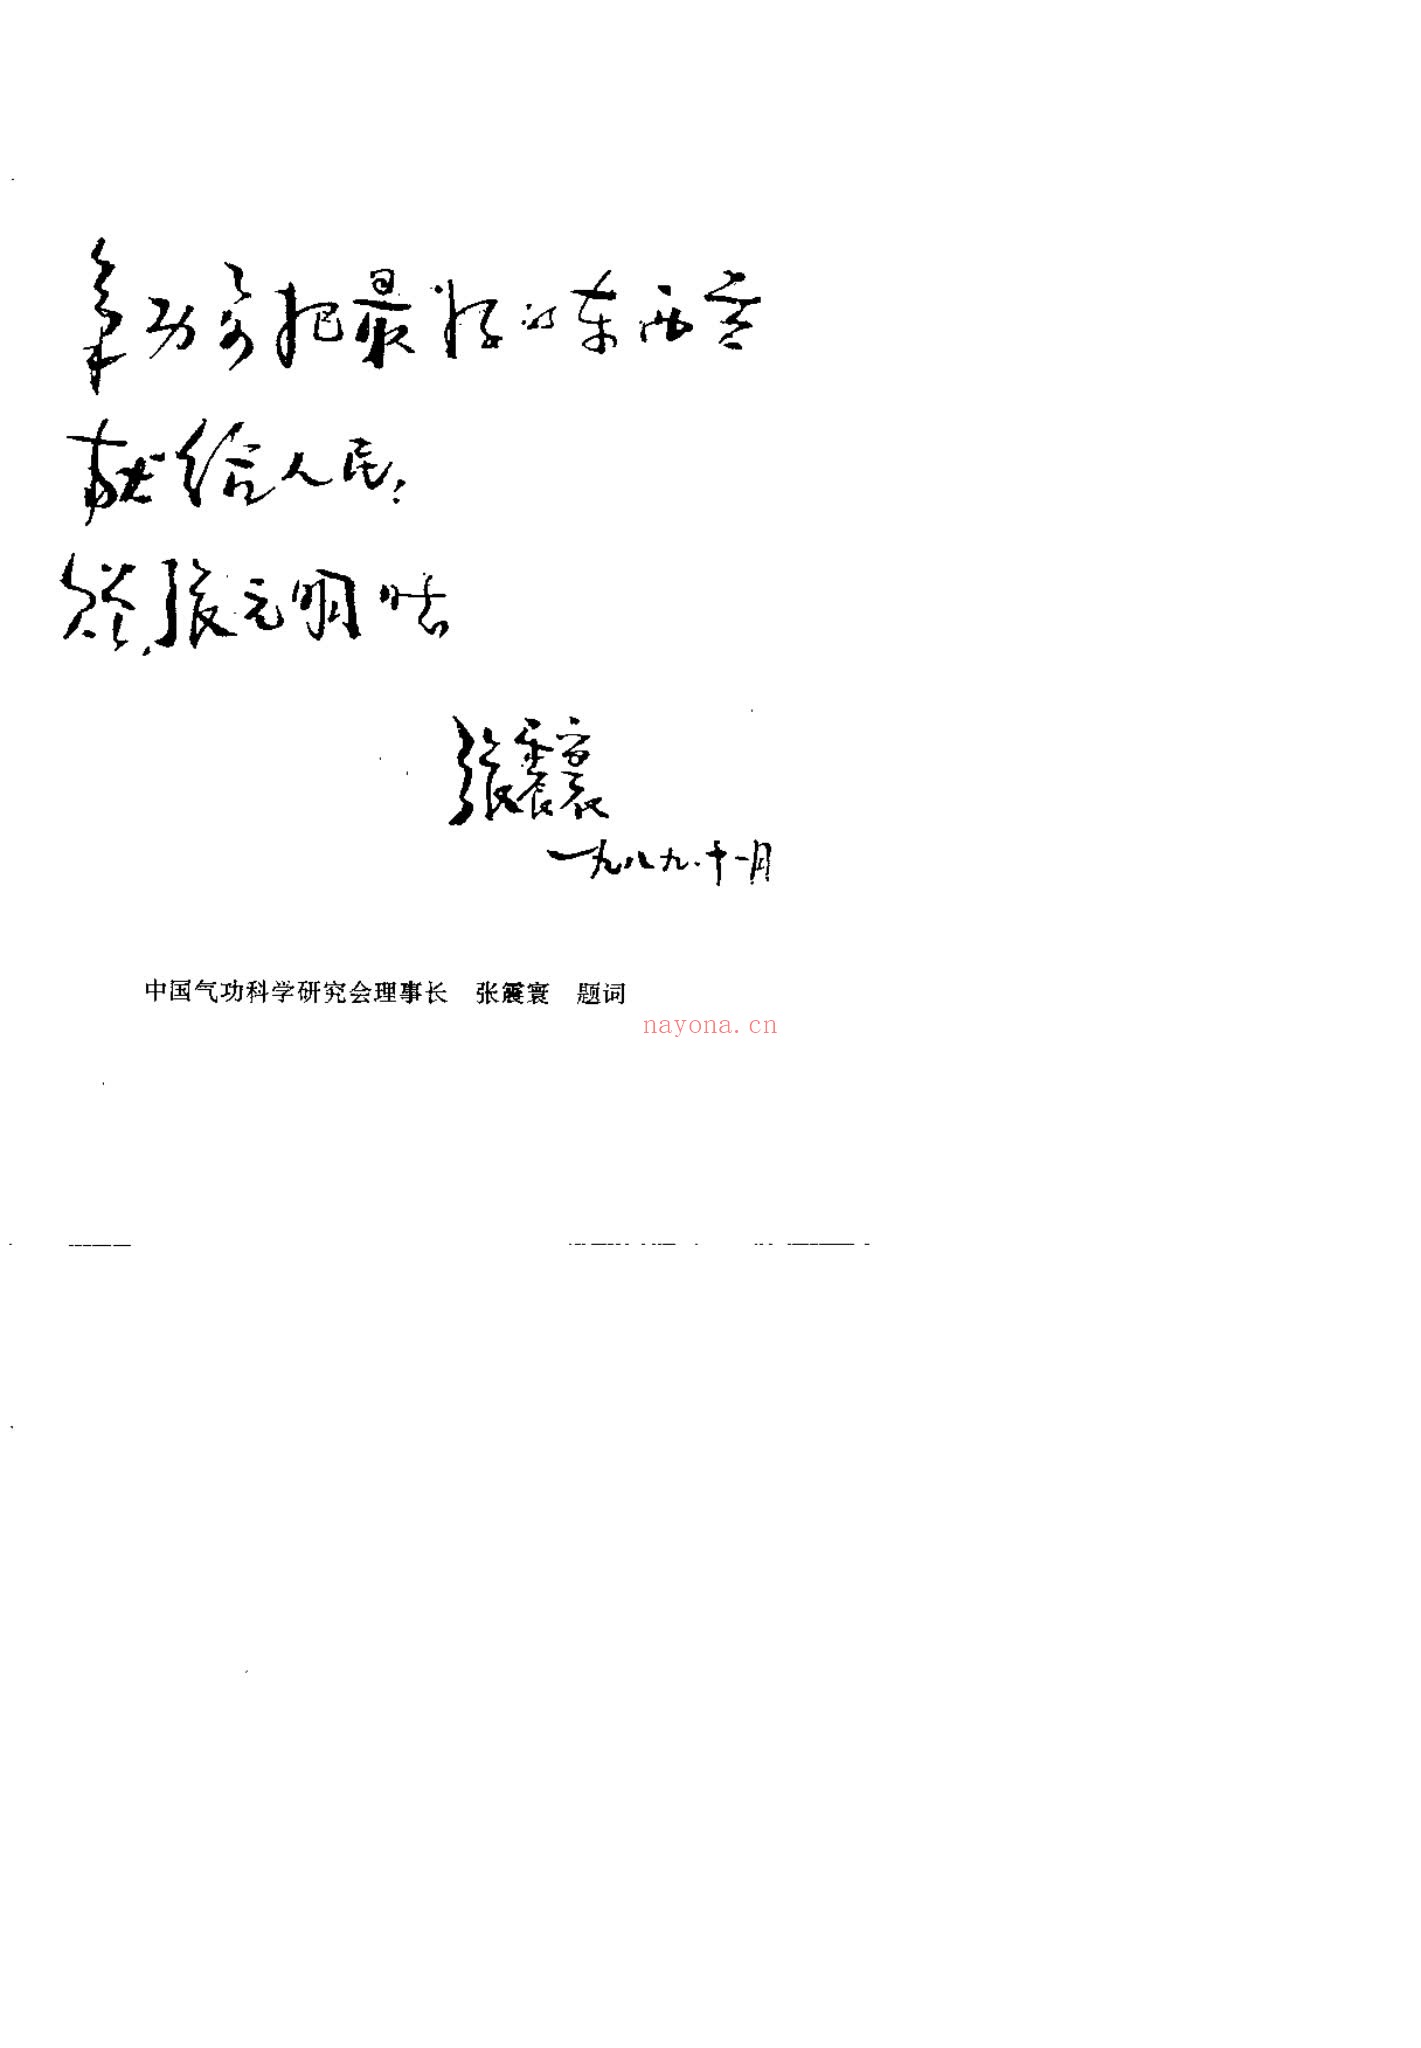 氣功要把最好的东西贡
献给人民:
张元明
张震寰
一九八九.十一月
中国气功科学研究会理事长 张震寰 题词
nayona.cn